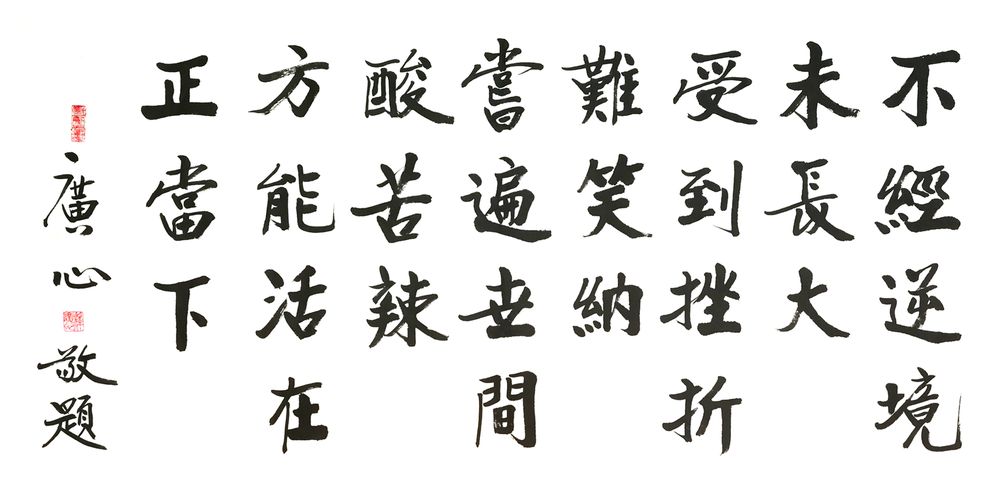 不經逆境
未長大
受到挫折
難笑納
嘗遍世間
酸苦辣
方能活在
正當下
廣心敬題